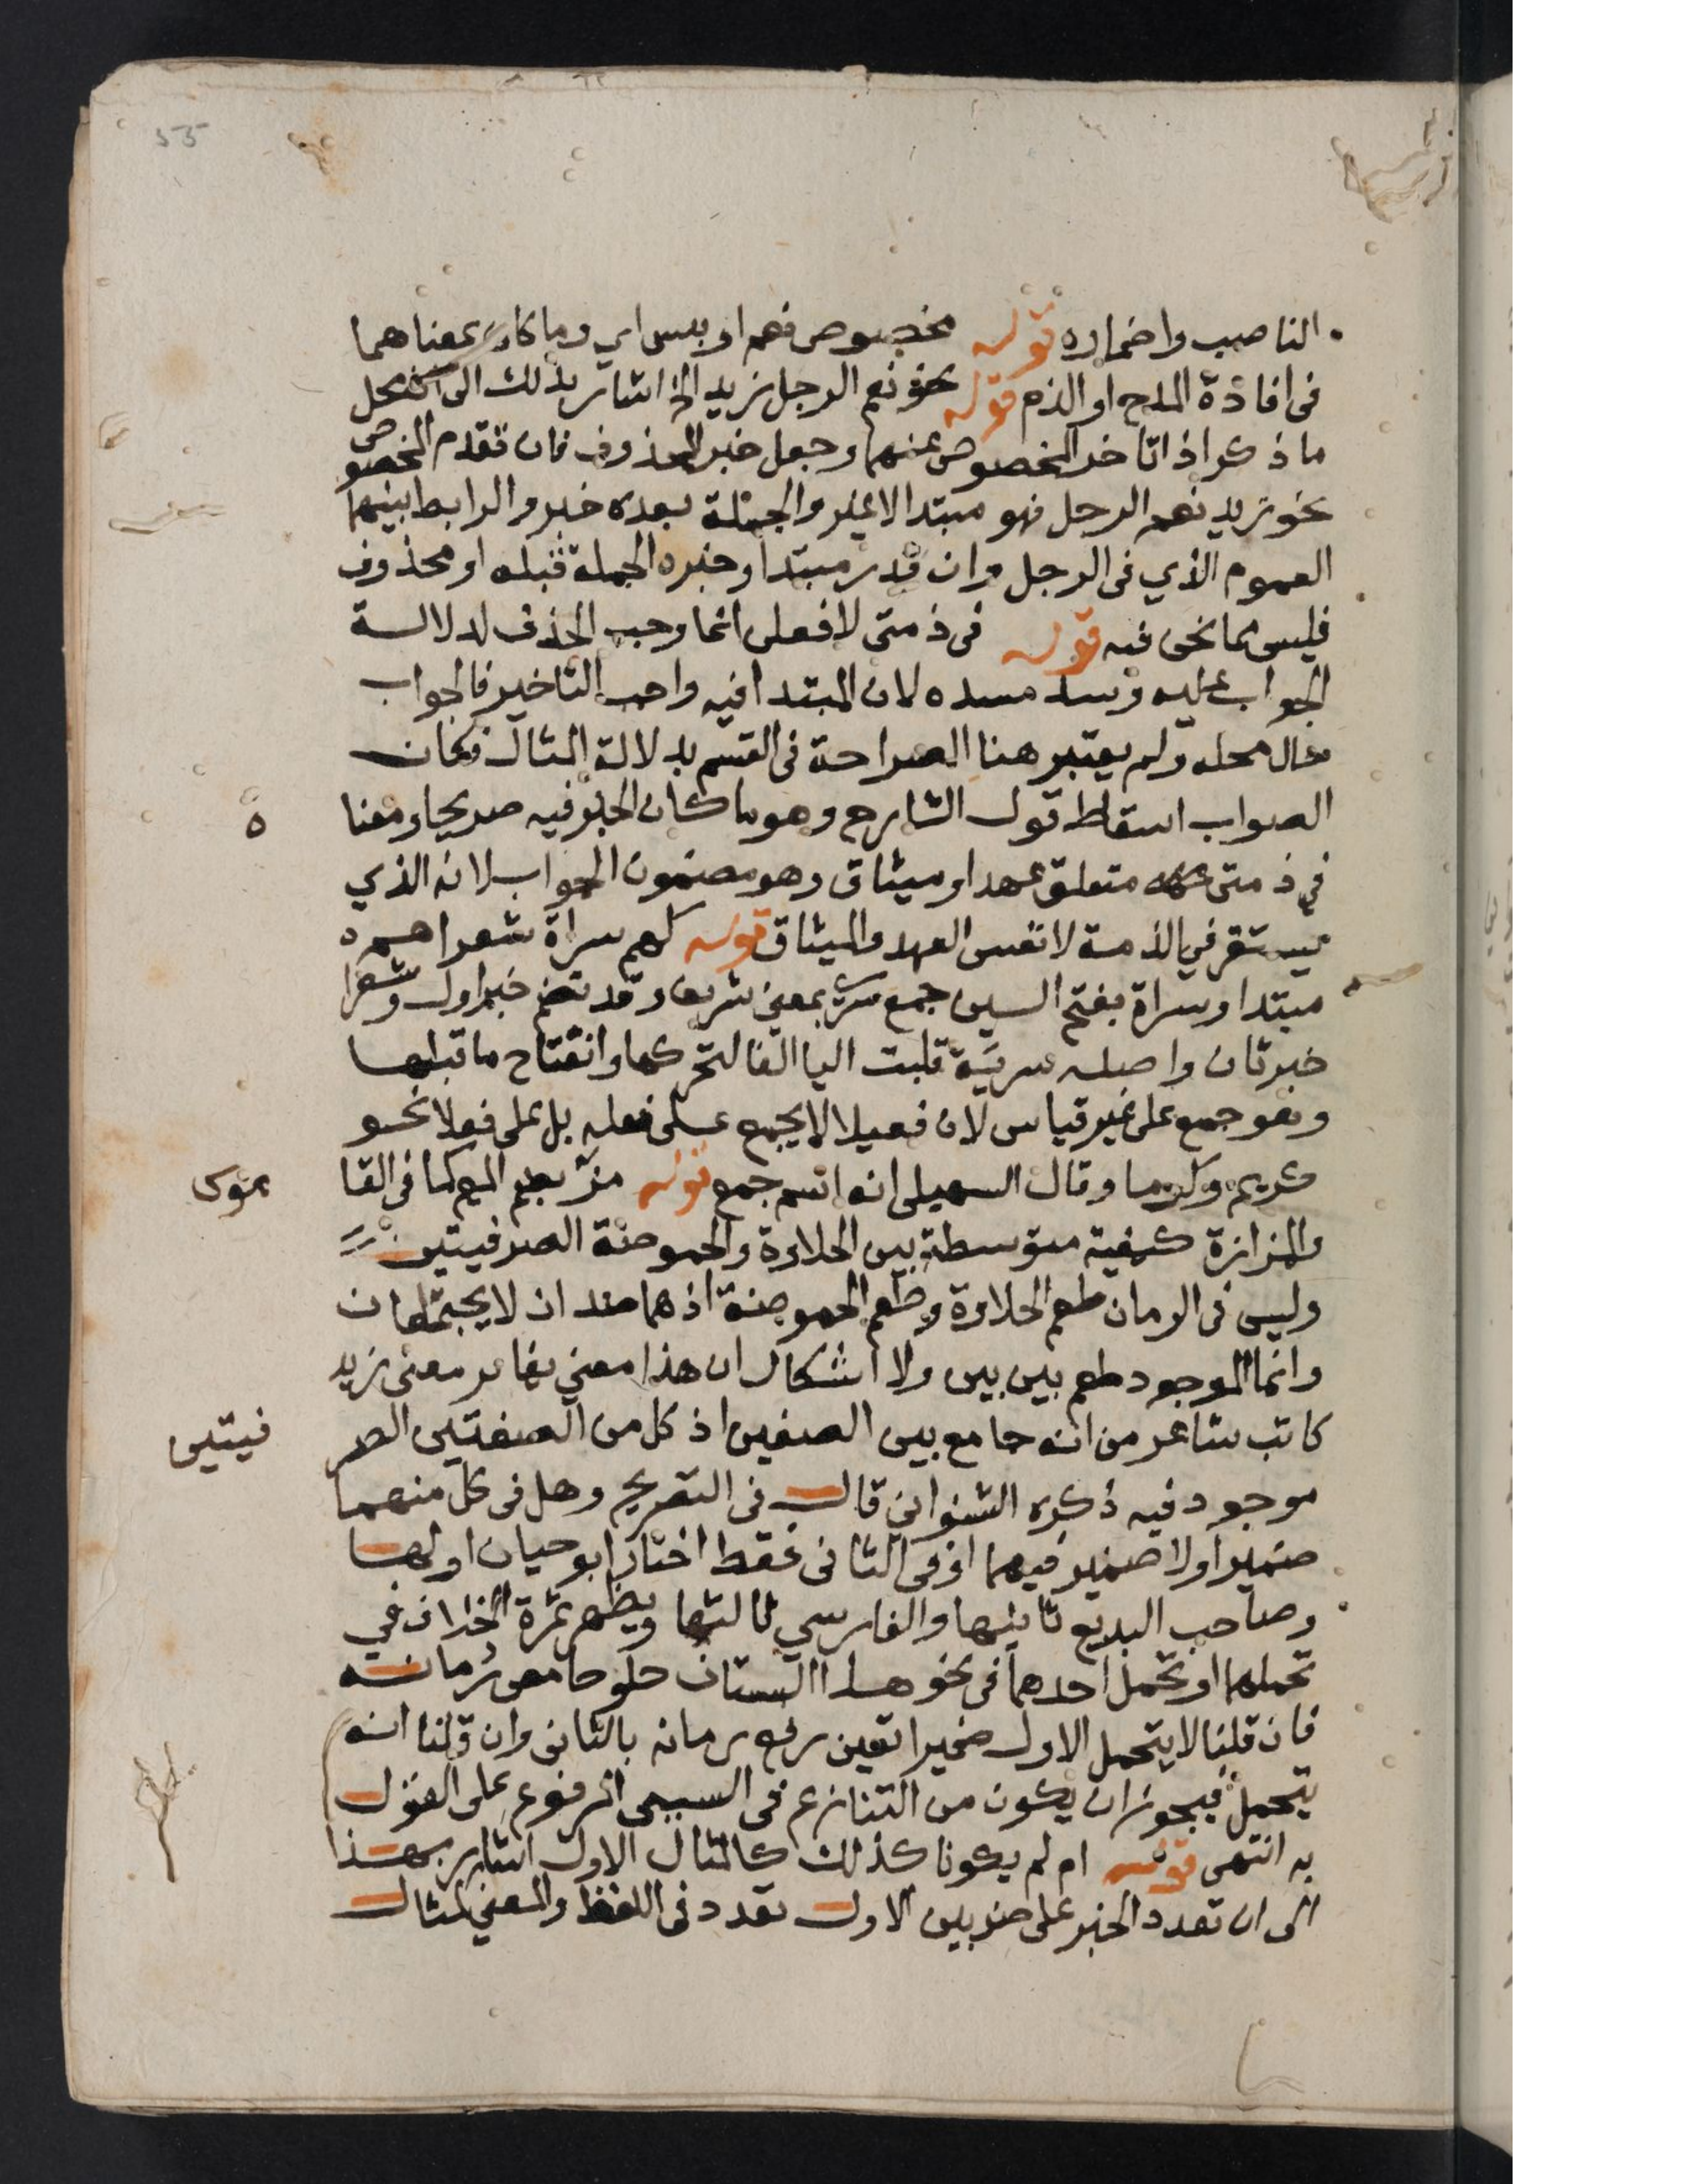 55
الناصب واضماره قوله مخصوص نعم او بيس اي وما كان بمعناهما
فى افادة المدح او الذم قوله نحو نعم الرجل زيد الخ اشار بذلك الى ان محل
ما ذكر اذا تاخر المخصوص عنهما وجعل خبر المحذوف فان تقدم المخصوص
نحو زيد نعم الرجل فهو مبتدا لا غير والجملة بعده خبر والرابط بينهما
العموم الذي فى الرجل وان قدر مبتدا وخبره الجملة قبله او محذوف
فليس مما نحن فيه قوله فى ذمتى لافعلن انما وجب الحذف لدلالة
الجواب عليه وسد مسده لان المبتدا فيه واجب التاخير فالجواب
حال محله ولم يعتبر هنا الصراحة فى القسم بدلالة المثال فكان
الصواب اسقاط قول الشارح وهو ما كان الخبر فيه صريحا ومعنا ه
في ذمتى متعلق عهد او ميثاق وهو مضمون الجواب لانه الذي
يستقر في الذمة لا نفس العهد والميثاق قوله هم سراة شعراهم
مبتدا وسراة بفتح السين جمع سرى بمعنى شريف وقد تضم خبر اول وشعرا
خبر ثان واصله سرية قلبت اليا الفا لتحركها وانفتاح ما قبلها
وهو جمع على غير قياس لان فعيلا لا يجمع على فعلة بل على فعلا نحو
كريم وكرما وقال السهيلى انه اسم جمع قوله مز بضم الميم كما فى القا موس
والمزازة كيفية متوسطة بين الحلاوة والحموضة الصرفيتين
وليس فى الرمان طعم الحلاوة وطعم الحموضة اذ هما ضدان لا يجتمعان
وانما الموجود طعم بين بين ولا اشكال ان هذا معني يغاير معنى زيد
كاتب شاعر من انه جامع بين الصفتين اذ كل من الصفتين الصر فيتين
موجود فيه ذكره الشنواني قال فى التصريح وهل فى كل منهما
ضمير اولا ضمير فيهما او فى الثانى فقط اختار ابو حيان اولها
وصاحب البديع ثانيها والفارسي ثالثها ويظهر ثمرة الخلاف في
تحملهما او تحمل احدهما فى نحو هذا البستان حلو حامض رمانه
فان قلنا لا يتحمل الاول ضميرا تعين رفع رمانه بالثانى وان قلنا انه
يتحمل فيجوز ان يكون من التنازع فى السببى المرفوع على القول
به انتهى قوله ام لم يكونا كذلك كالمثال الاول اشار بهذا
الى ان تعدد الخبر على ضربين الاول تعدد فى اللفظ والمعنى كمثال